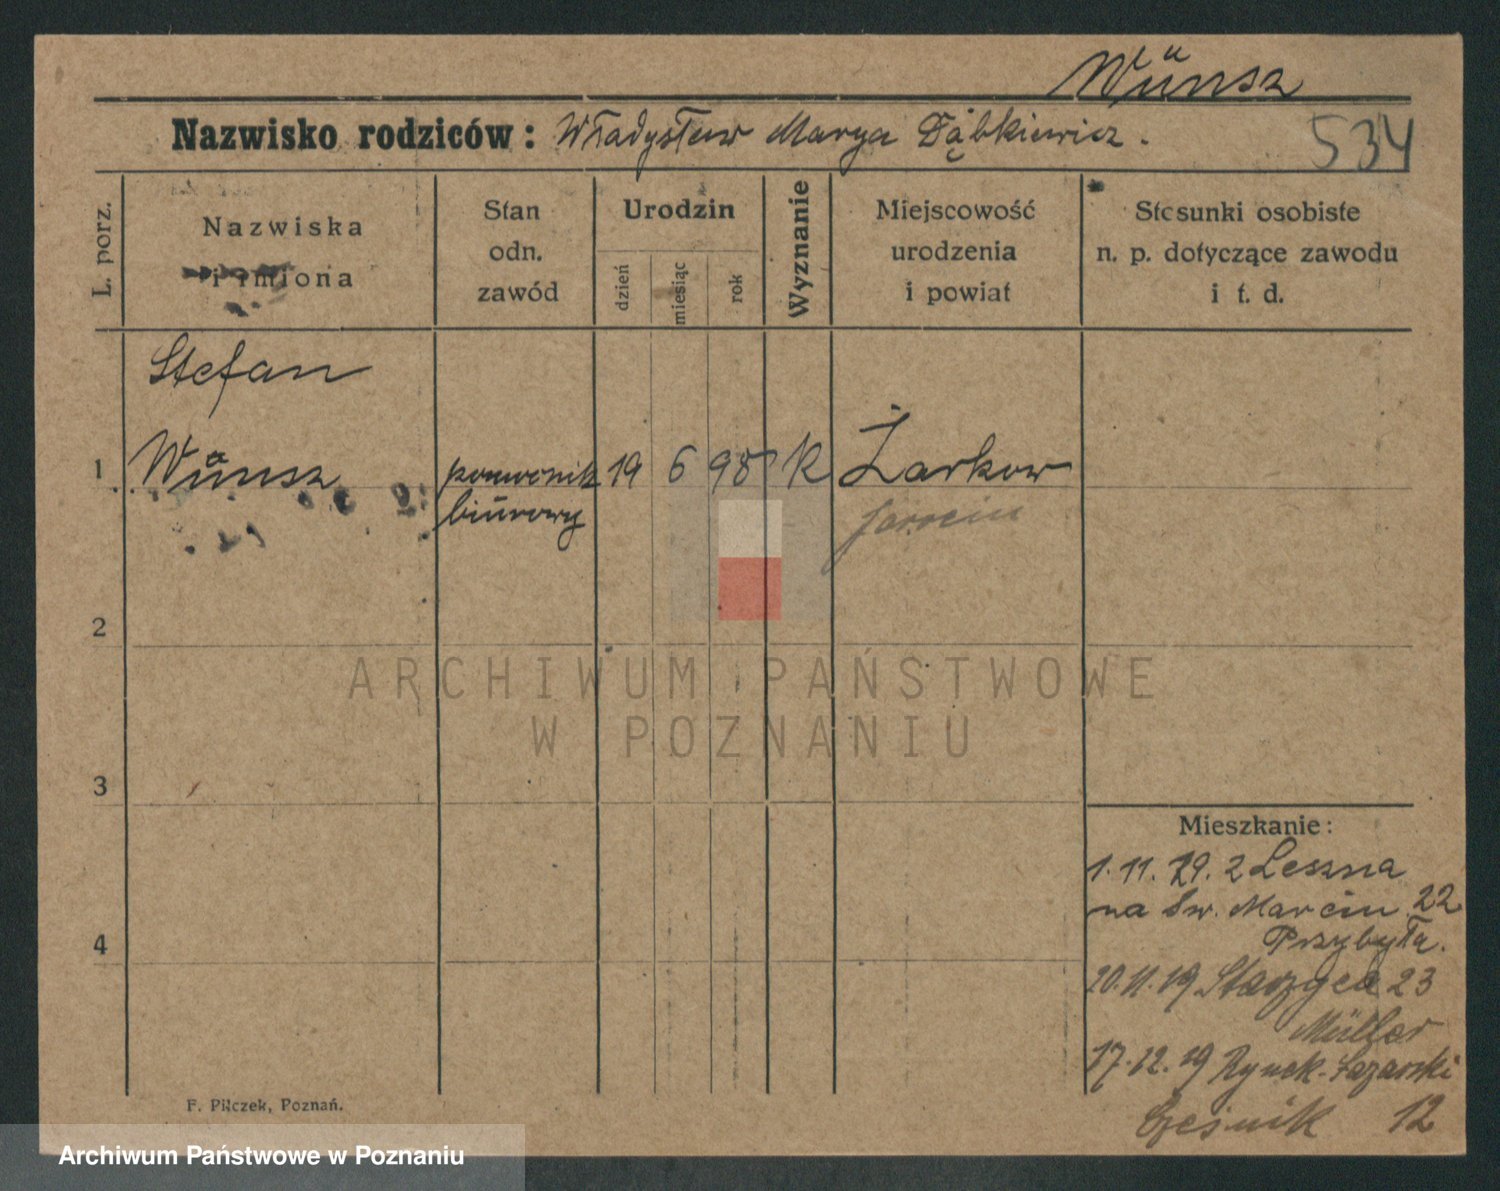 Wünsz
Nazwisko rodziców: Władysław Marya Dąbkiewicz.
534
L. porz.
Nazwiska
i imiona
Stan
odn.
zawód
Urodzin
dzień
miesiąc
rok
Wyznanie
Miejscowość
urodzenia
i powiat
Stosunki osobiste
n. p. dotyczące zawodu
i t. d.
Stefan
1 Wünsz pomocnik 19 6 98 K Żarkow
biurowy Jarocin
2
3
4
ARCHIWUM PAŃSTWOWE
W POZNANIU
Mieszkanie:
1. 11. 19. z Leszna
na Św. Marcin 22
Przybyła.
20. 11. 19 23
Müller
17. 12. 19 Rynek-Łazarski
Cześnik 12
F. Pilczek, Poznań.
Archiwum Państwowe w Poznaniu